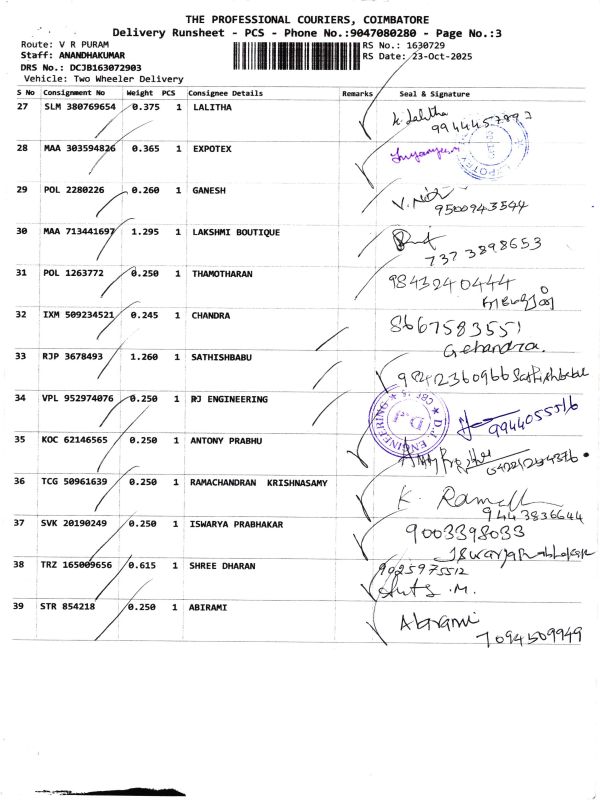 THE PROFESSIONAL COURIERS, COIMBATORE
Delivery Runsheet - PCS - Phone No.:9047080280 - Page No.:3
Route: V R PURAM RS No.: 1630729
Staff: ANANDHAKUMAR RS Date: 23-Oct-2025
DRS No.: DCJB163072903
Vehicle: Two Wheeler Delivery
S No Consignment No Weight PCS Consignee Details Remarks Seal & Signature
27 SLM 380769654 0.375 1 LALITHA K. Lalitha
28 MAA 303594826 0.365 1 EXPOTEX
29 POL 2280226 0.260 1 GANESH
9500943544
30 MAA 713441697 1.295 1 LAKSHMI BOUTIQUE
737 3898653
31 POL 1263772 0.250 1 THAMOTHARAN 9843240444
32 IXM 509234521 0.245 1 CHANDRA 8667583551
33 RJP 3678493 1.260 1 SATHISHBABU
Sathishbabu
34 VPL 952974076 0.250 1 RJ ENGINEERING
9944055516
35 KOC 62146565 0.250 1 ANTONY PRABHU
36 TCG 50961639 0.250 1 RAMACHANDRAN KRISHNASAMY
9443836644
37 SVK 20190249 0.250 1 ISWARYA PRABHAKAR 9003398033
38 TRZ 165009656 0.615 1 SHREE DHARAN 9025975512
39 STR 854218 0.250 1 ABIRAMI Abirami
7094509949